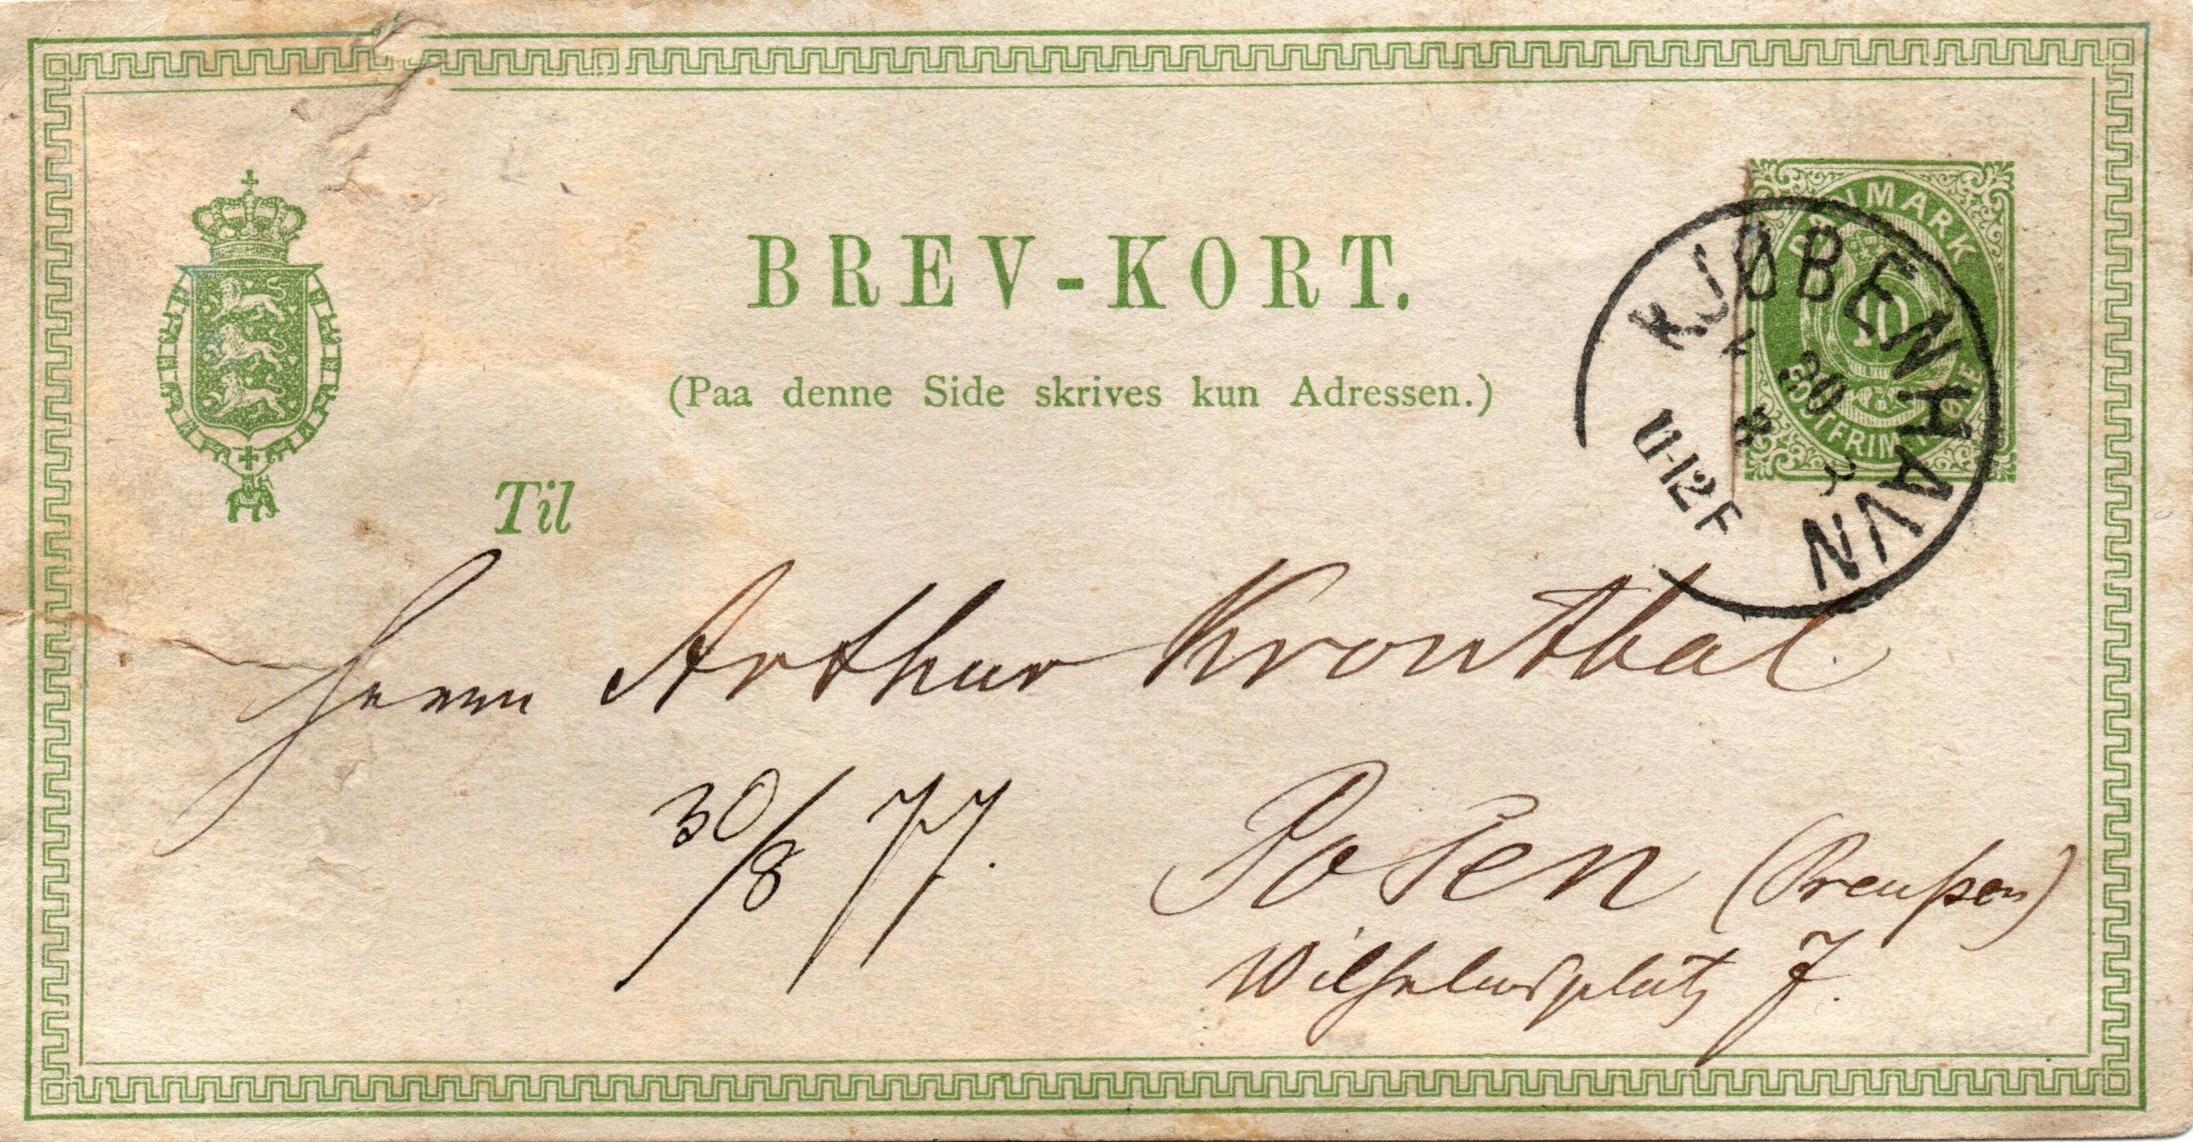 BREV-KORT.
(Paa denne Side skrives kun Adressen.)
DANMARK
10
POSTFRIM
KJØBENHAVN
30
8
11-12 F
Til
Herrn Arthur Kronthal
30/8 77.
Posen (Preußen)
Wilhelmsplatz 7.